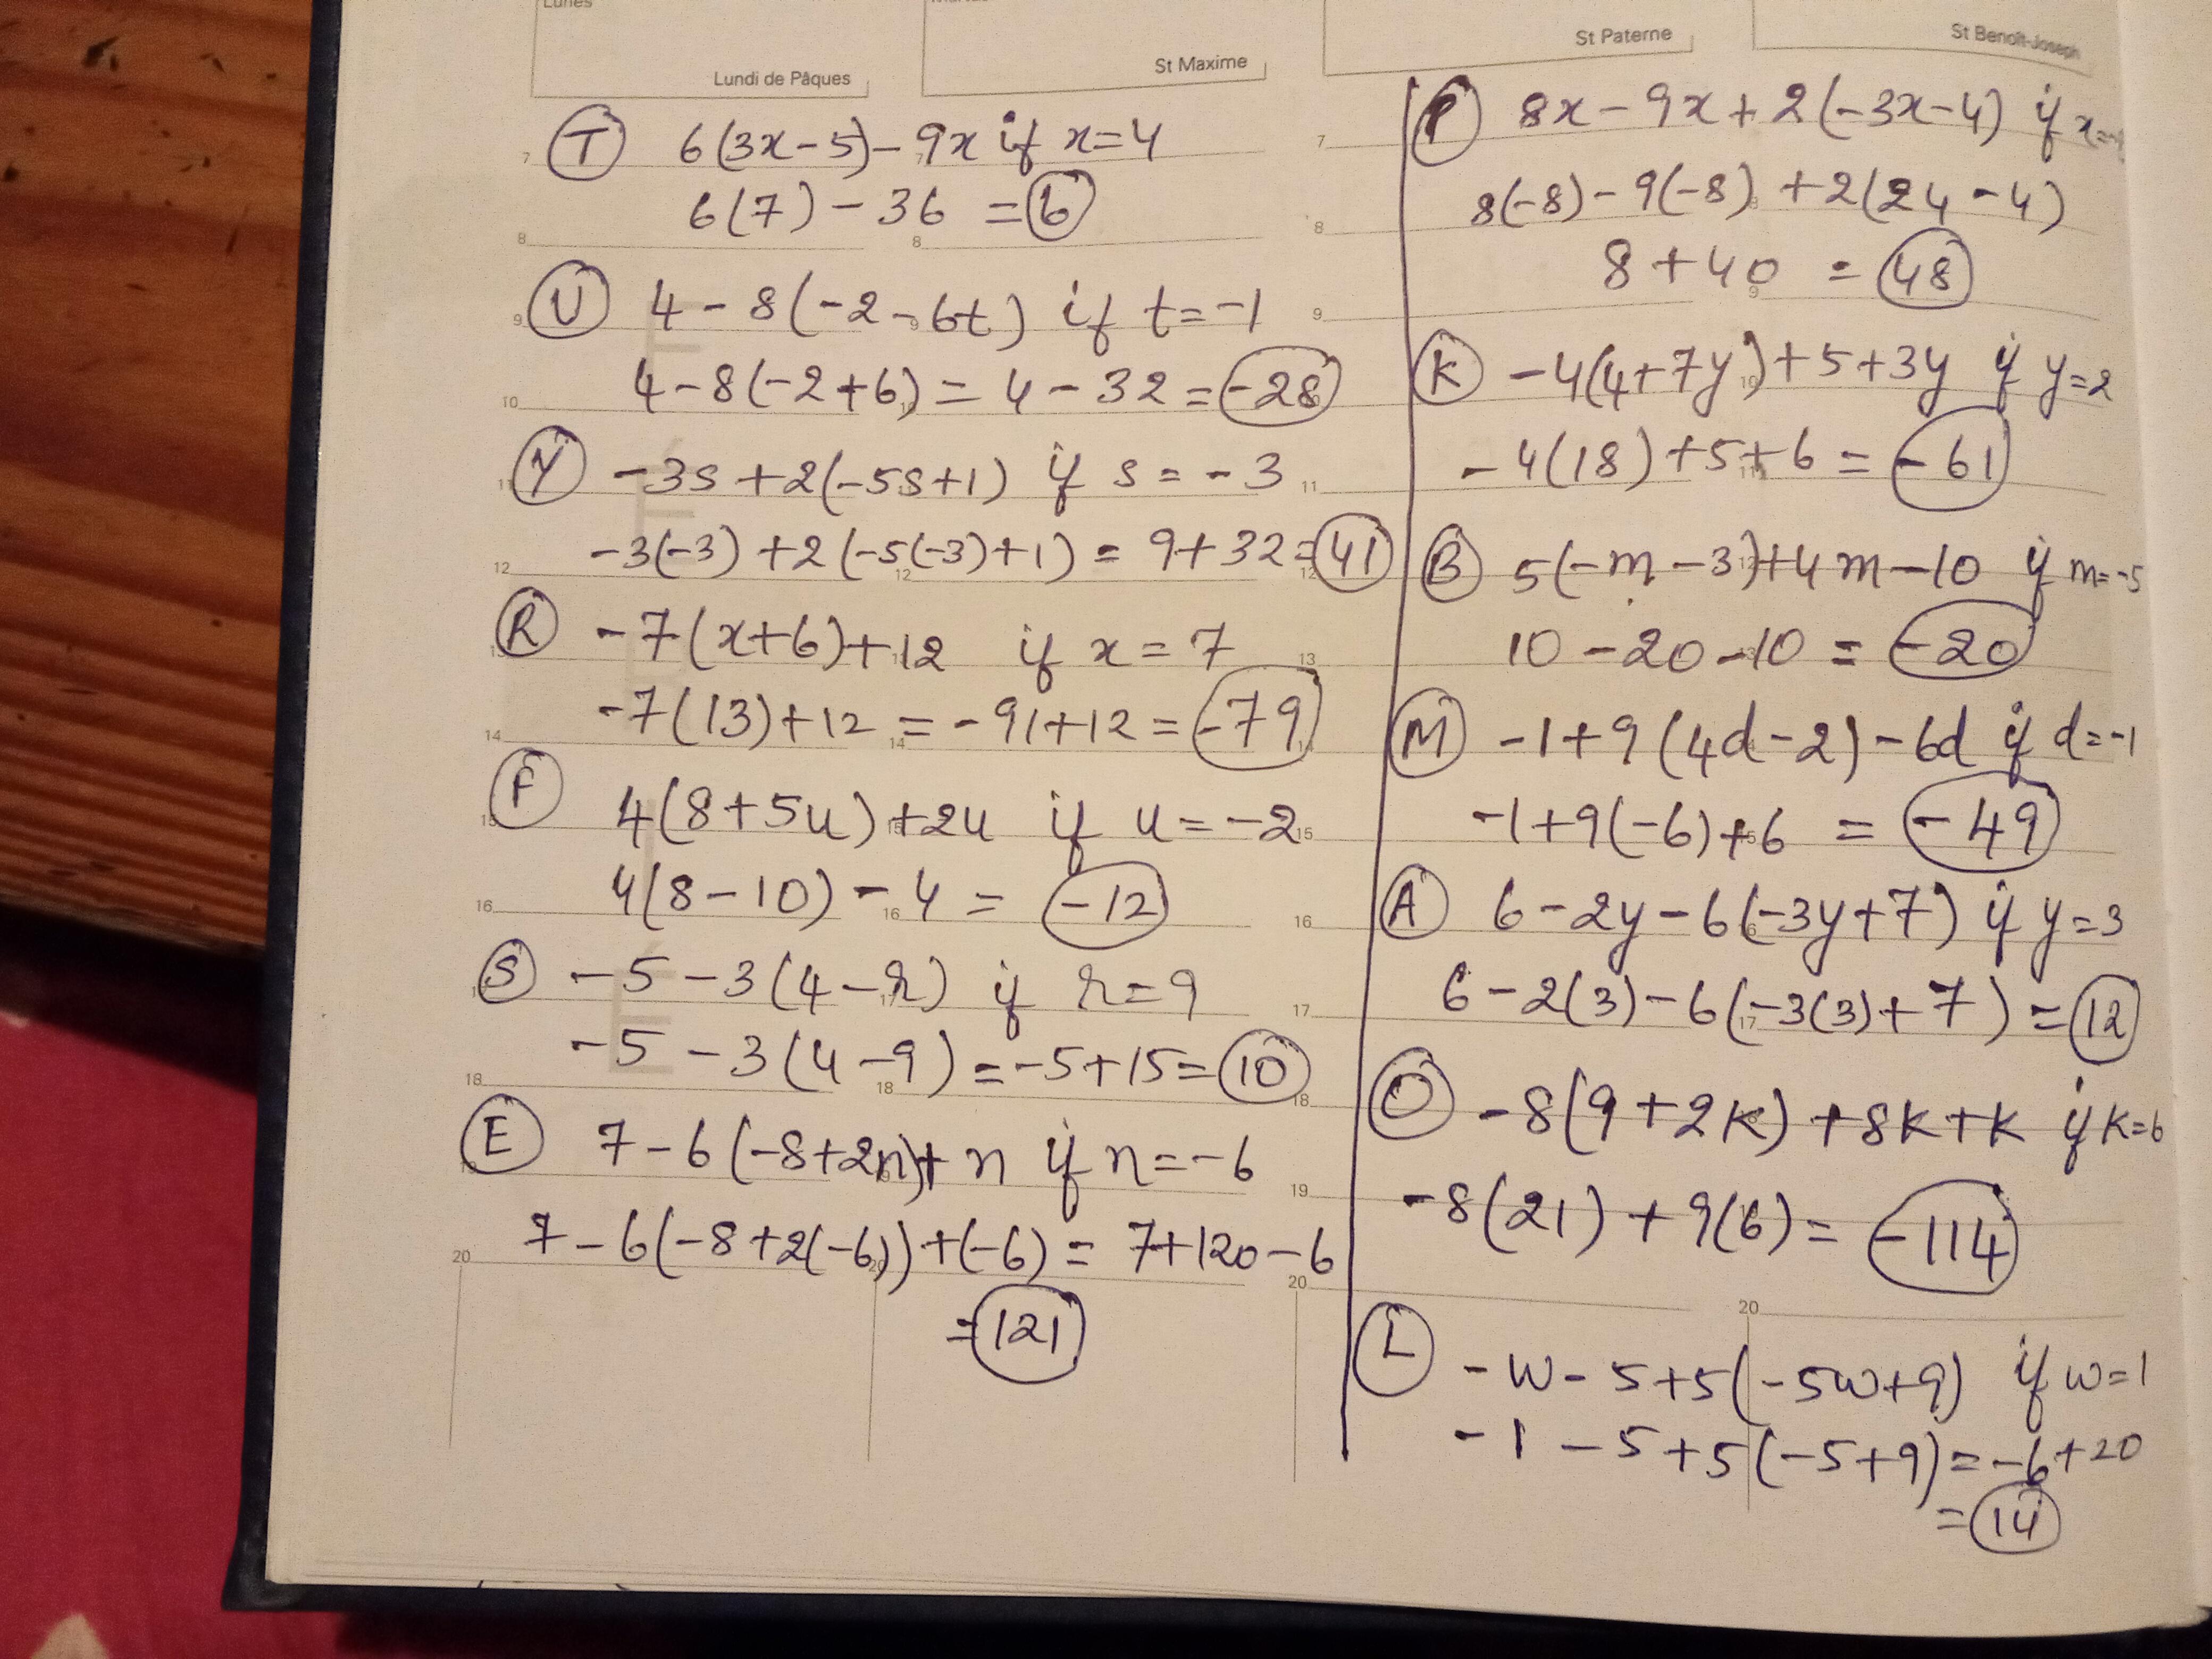 Lundi de Pâques
St Maxime
St Paterne
St Benoît-Joseph
T 6(3x-5)-9x if x=4
6(7)-36 = 6
U 4-8(-2-6t) if t=-1
4-8(-2+6) = 4-32 = -28
Y -3s+2(-5s+1) if s=-3
-3(-3)+2(-5(-3)+1) = 9+32=41
R -7(x+6)+12 if x=7
-7(13)+12 = -91+12 = -79
F 4(8+5u)+2u if u=-2
4(8-10)-4 = -12
S -5-3(4-r) if r=9
-5-3(4-9)=-5+15=10
E 7-6(-8+2n)+n if n=-6
7-6(-8+2(-6))+(-6) = 7+120-6
=121
P 8x-9x+2(-3x-4) if x=
8(-8)-9(-8)+2(24-4)
8+40 = 48
K -4(4+7y)+5+3y if y=2
-4(18)+5+6 = -61
B 5(-m-3)+4m-10 if m=-5
10-20-10 = -20
M -1+9(4d-2)-6d if d=-1
-1+9(-6)+6 = -49
A 6-2y-6(-3y+7) if y=3
6-2(3)-6(-3(3)+7) = 12
O -8(9+2k)+8k+k if k=6
-8(21)+9(6) = -114
L -w-5+5(-5w+9) if w=1
-1-5+5(-5+9)=-6+20
=14